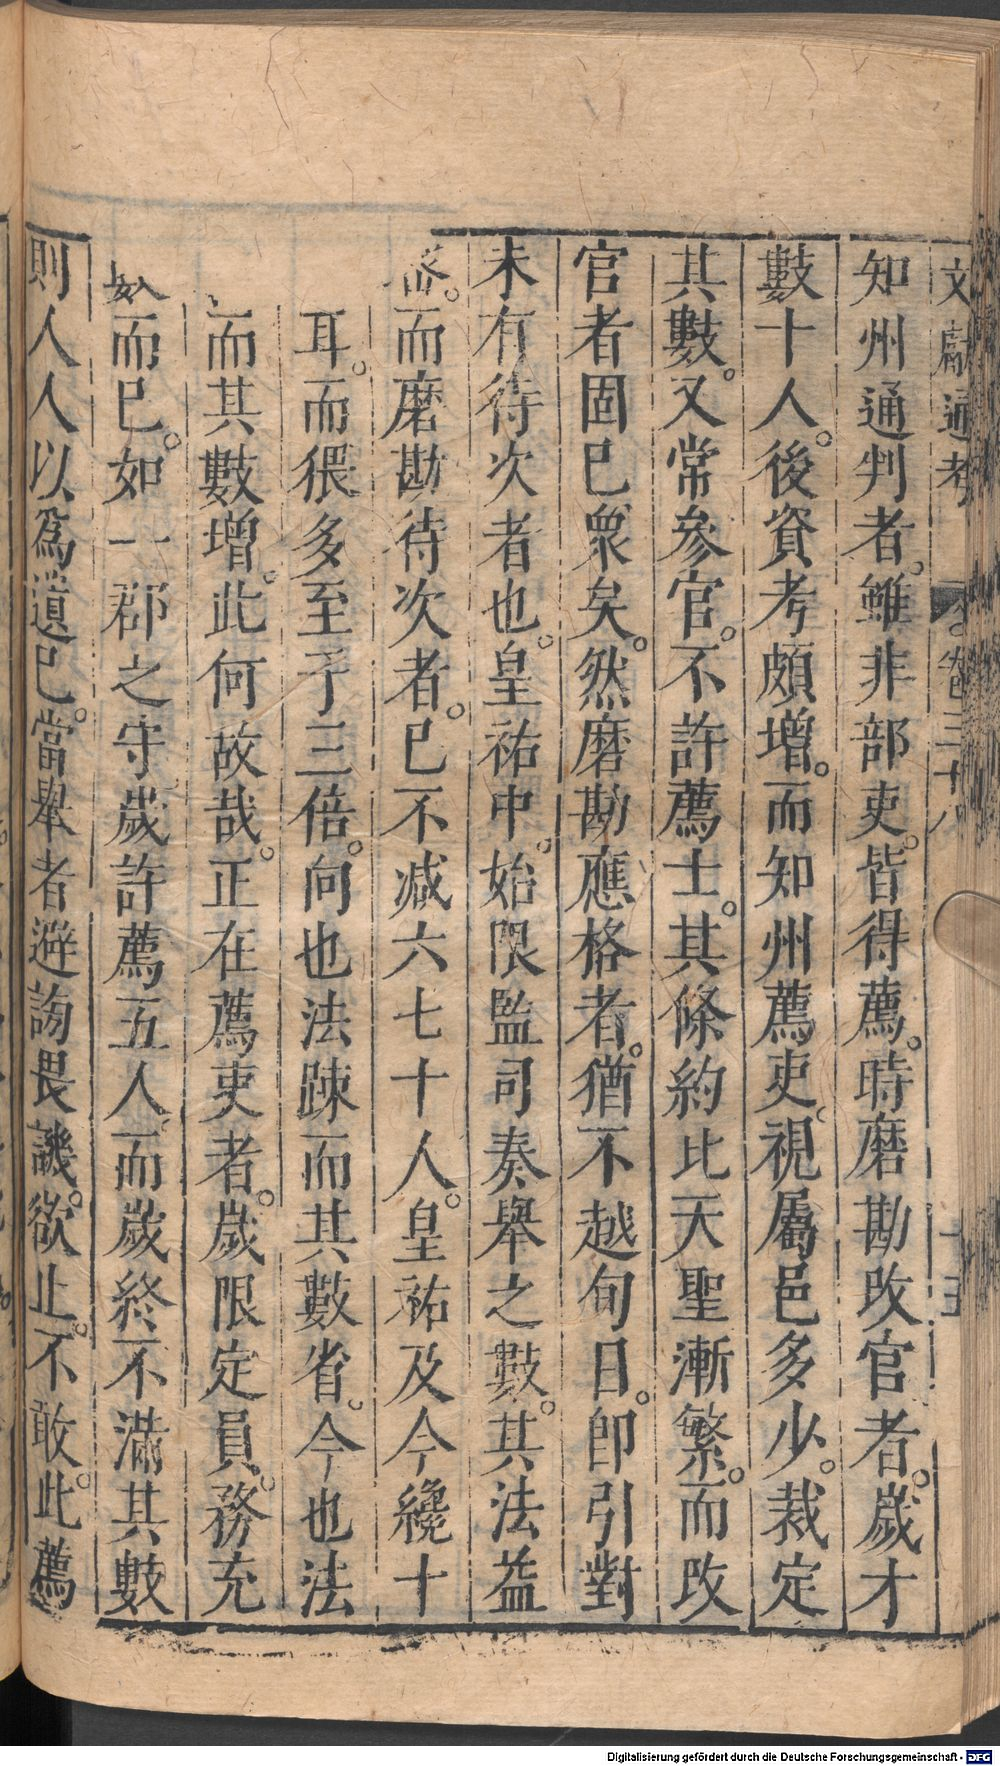 文獻通考 卷三十八 十五
知州通判者雖非部吏皆得薦時磨勘改官者歲才
數十人後資考頗增而知州薦吏視屬邑多少裁定
其數又常參官不許薦士其條約比天聖漸繁而改
官者固已眾矣然磨勘應格者猶不越旬日即引對
未有待次者也皇祐中始限監司奏舉之數其法益
密而磨勘待次者已不減六七十人皇祐及今纔十
耳而猥多至于三倍向也法疎而其數省今也法
而其數增此何故哉正在薦吏者歲限定員務充
數而已如一郡之守歲許薦五人而歲終不滿其數
則人人以為遺已當舉者避謗畏譏欲止不敢此薦
Digitalisierung gefördert durch die Deutsche Forschungsgemeinschaft - DFG